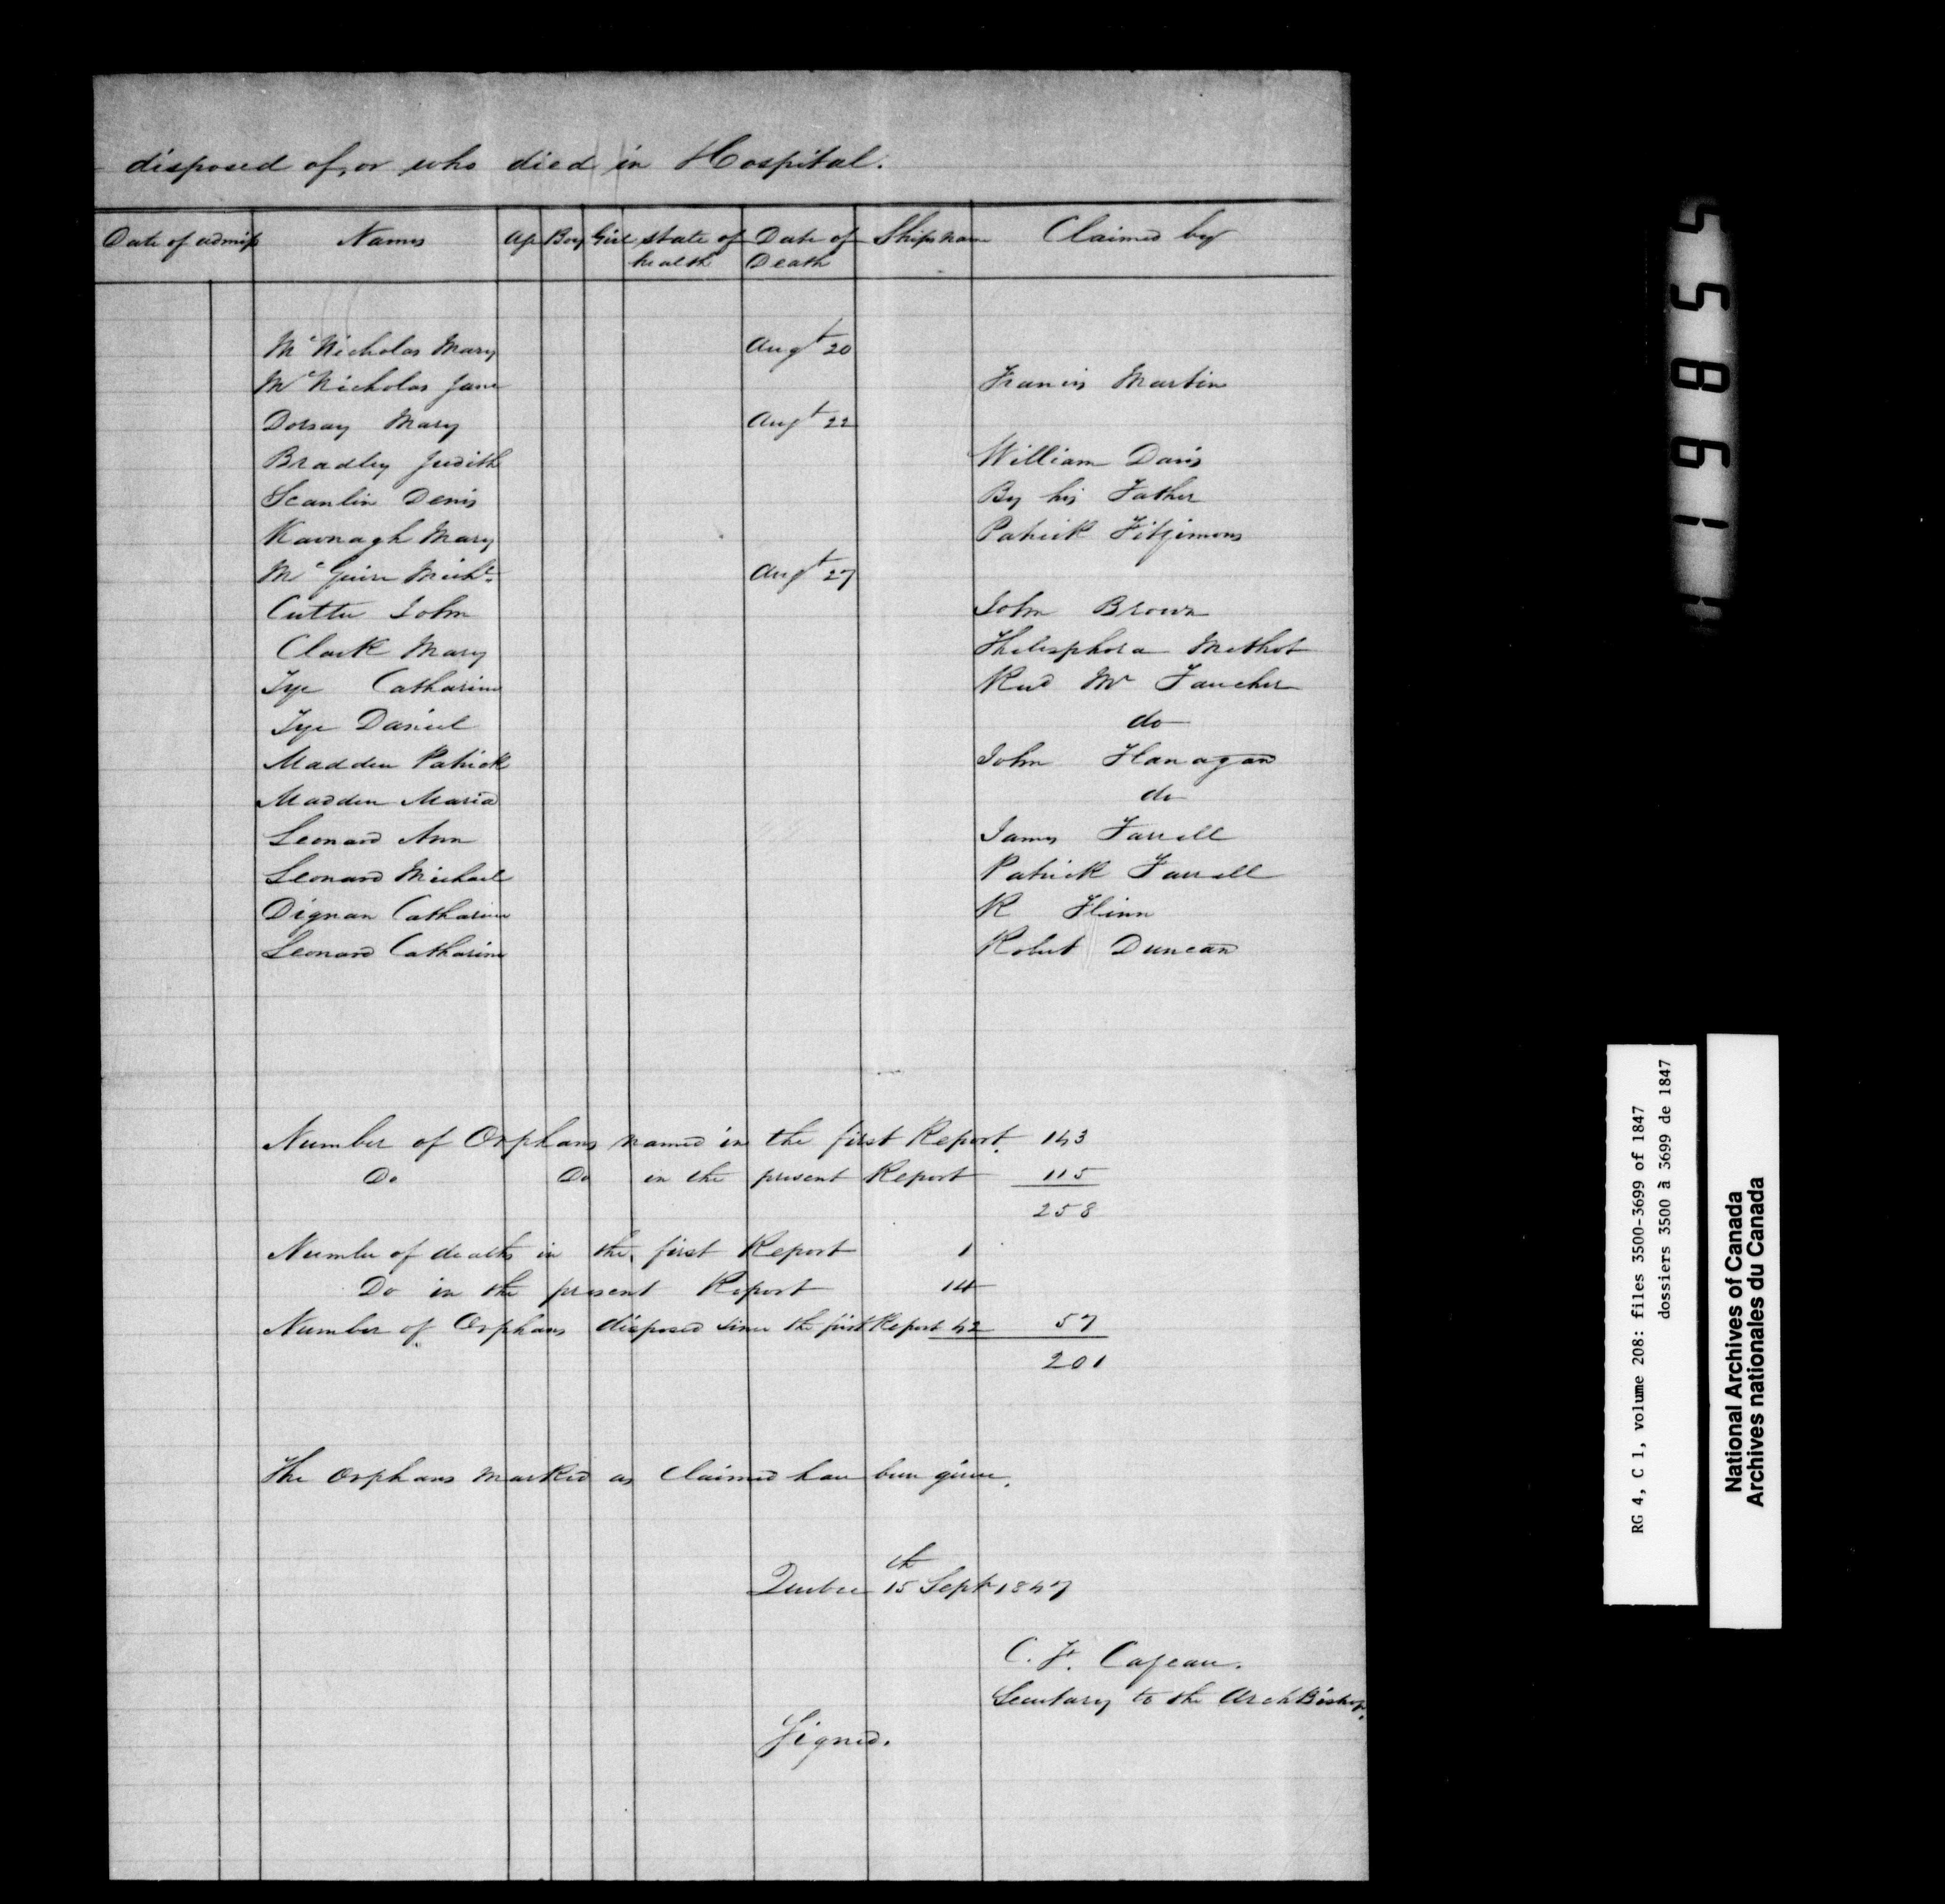 disposed of, or who died in Hospital.
Date of admiss Names Age Boy Girl state of health Date of Death Ships name Claimed by
McNicholas Mary Augt 20
McNicholas Jane Francis Martin
Dorsay Mary Augt 22
Bradley Judith William Davis
Scanlin Denis By his Father
Kavnagh Mary Patrick Fitzimons
McGuire Michl. Augt 27
Cutter John John Brown
Clark Mary Thelesphora Methot
Tye Catharine Revd Mr Faucher
Tye Daniel do
Madden Patrick John Flanagan
Madden Maria do
Leonard Ann James Farrell
Leonard Michael Patrick Farrell
Dignan Catharine R Flinn
Leonard Catharine Robert Duncan
Number of Orphans named in the first Report. 143
Do Do in the present Report 115
258
Number of deaths in the first Report 1
Do in the present Report 14
Number of Orphans disposed since the first Report 42 57
201
The Orphans marked as Claimed have been given.
Quebec 15th Sept 1847
C. F. Cazeau.
Secretary to the ArchBishop.
Signed.
16855
RG 4, C 1, volume 208: files 3500-3699 of 1847
dossiers 3500 à 3699 de 1847
National Archives of Canada
Archives nationales du Canada